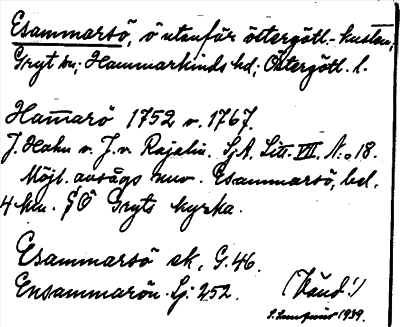 Esammarsö, ö utanför östergötl. kusten,
Gryt sn; Hammarkinds hd; Östergötl. l.
Ham̄arö 1752 v. 1767.
J. Hahn v. J. v. Rajalin. SjA. Litt. VII. N:o 18.
Möjl. avsågs nuv. Esammarsö, bel.
4 km. SÖ Gryts kyrka.
Esammarsö ek, G. 46.
Ensammarön. Sj: 252. (Känd!)
1939.